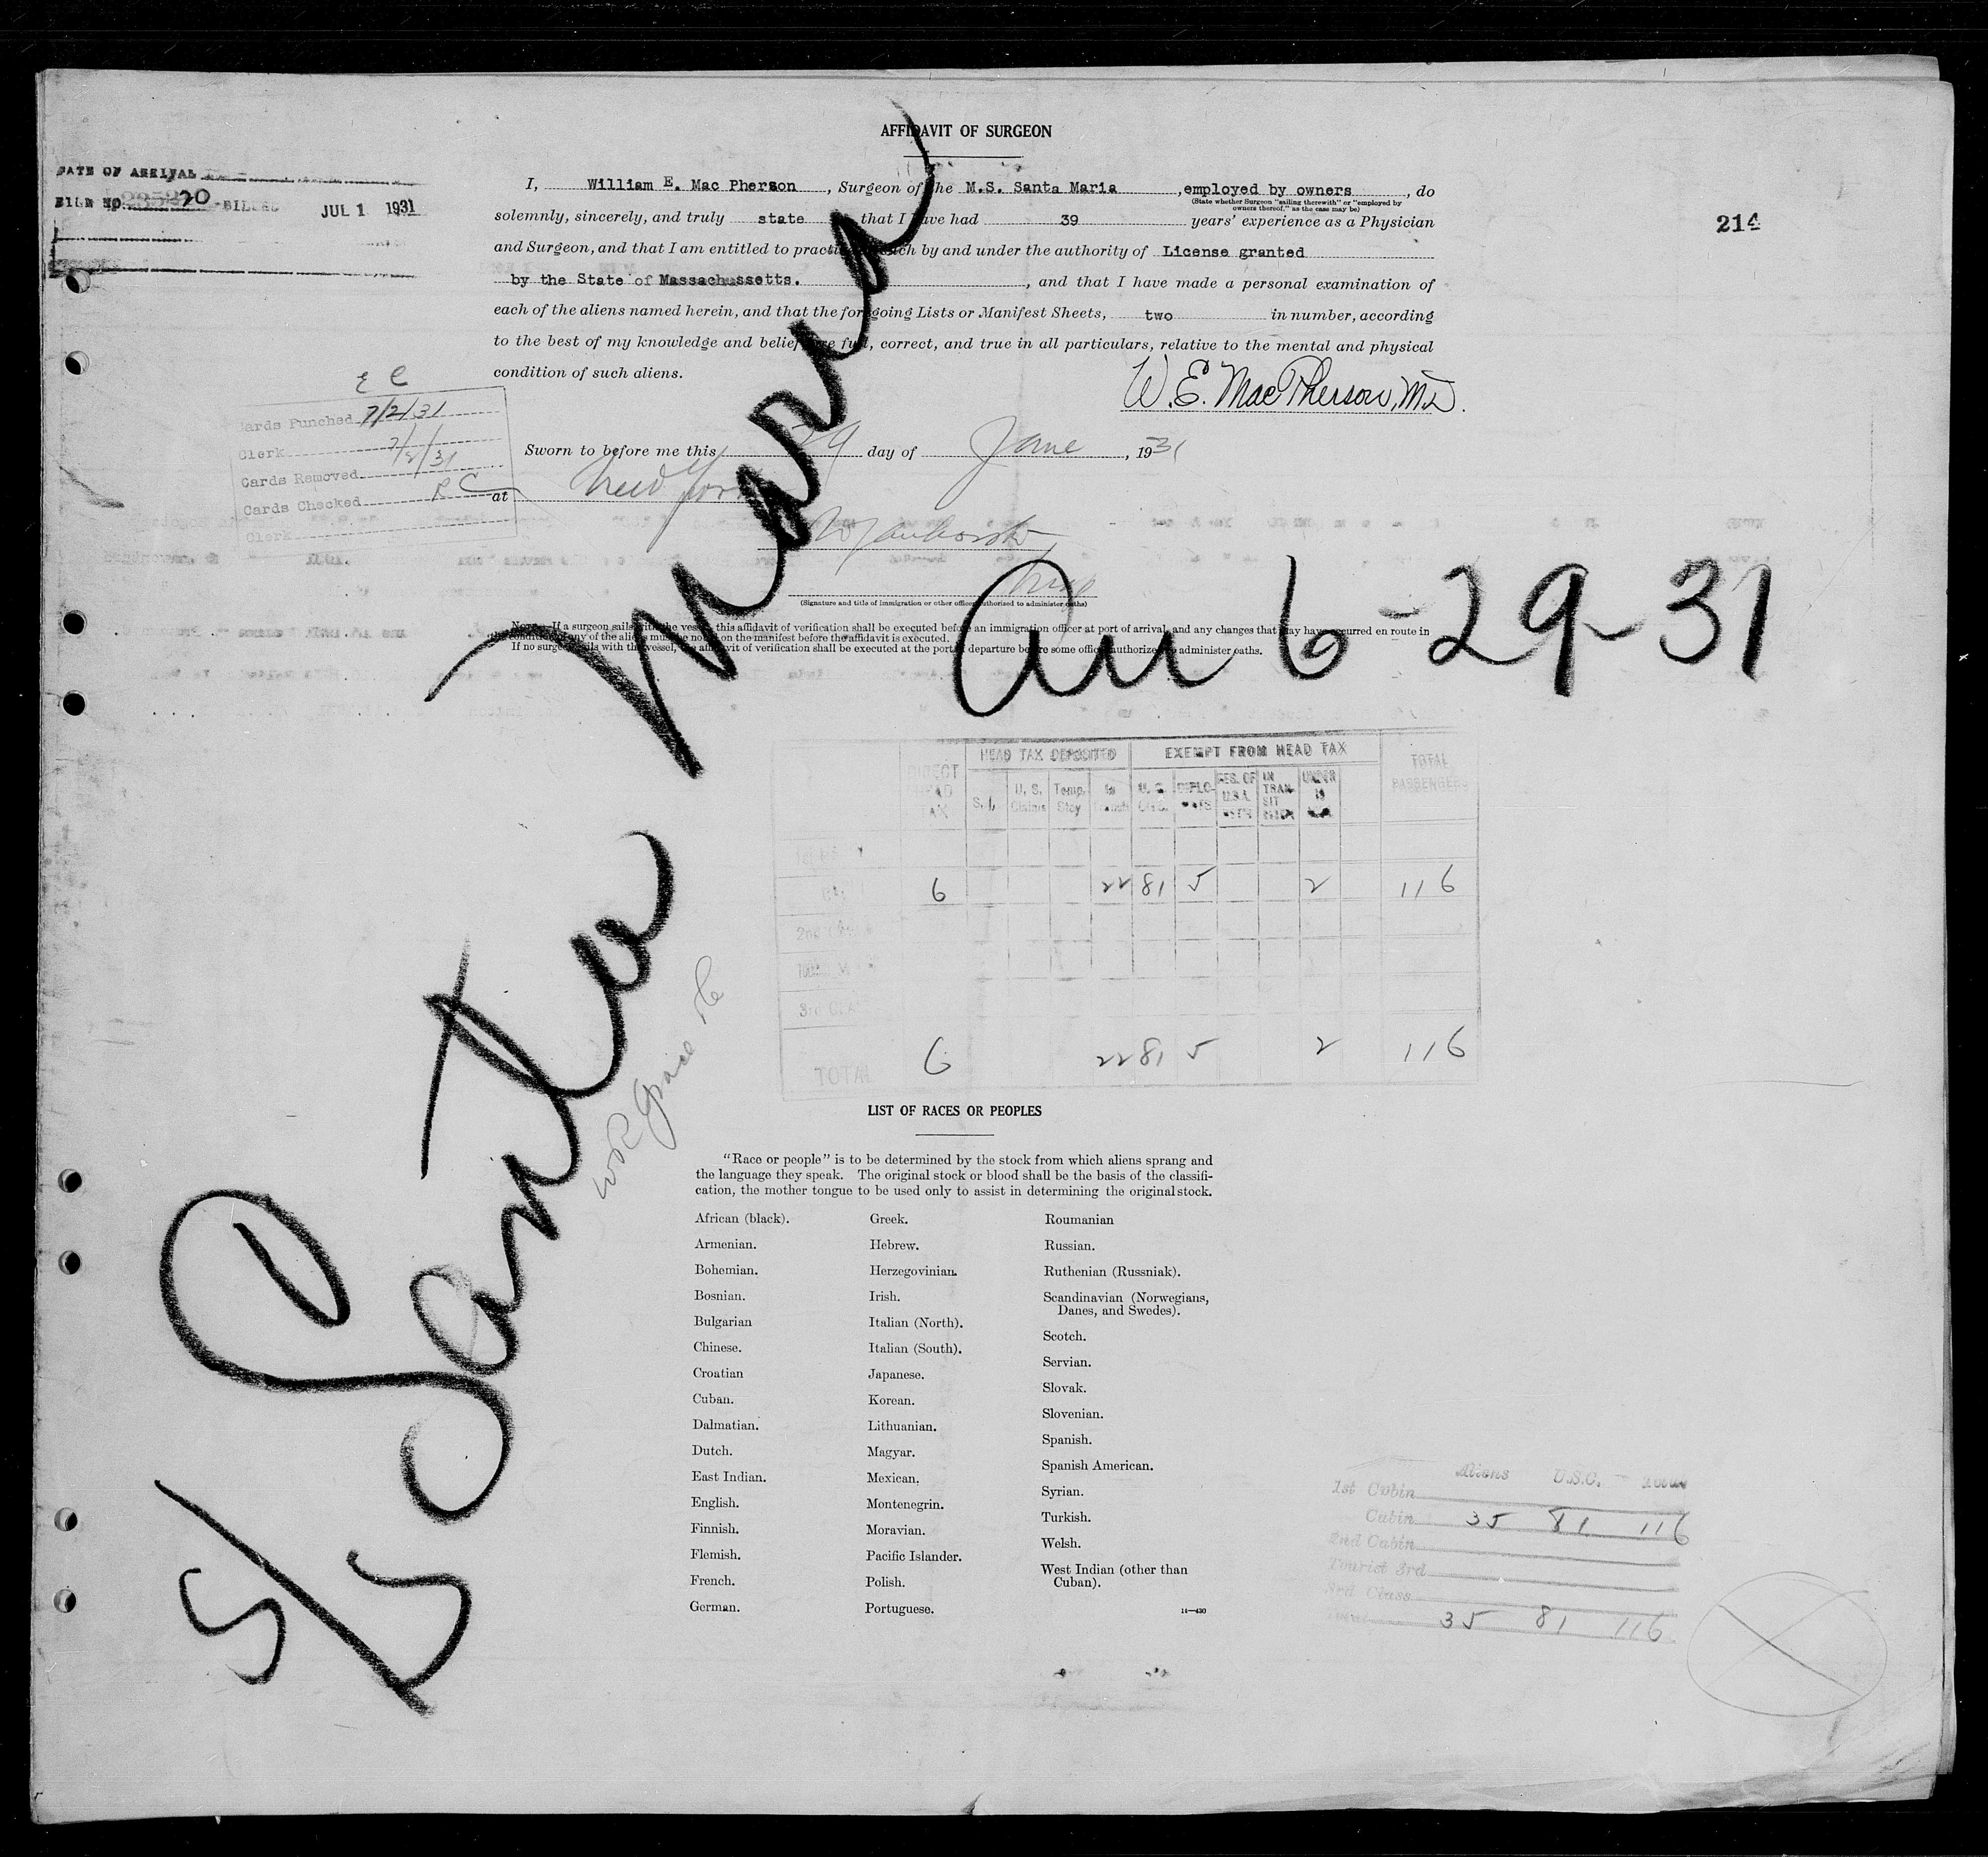 AFFIDAVIT OF SURGEON
DATE OF ARRIVAL
FILE NO. 20 - BILLED JUL 1 1931
214
I, William E. Mac Pherson, Surgeon of the M.S. Santa Maria, employed by owners, do
(State whether Surgeon "sailing therewith" or "employed by owners thereof," as the case may be)
solemnly, sincerely, and truly state that I have had 39 years' experience as a Physician
and Surgeon, and that I am entitled to practice such by and under the authority of License granted
by the State of Massachussetts., and that I have made a personal examination of
each of the aliens named herein, and that the foregoing Lists or Manifest Sheets, two in number, according
to the best of my knowledge and belief, are full, correct, and true in all particulars, relative to the mental and physical
condition of such aliens.
W. E. MacPherson, M.D.
E C
Cards Punched 7/2/31
Clerk
Cards Removed 7/2/31
Cards Checked R C
Clerk
Sworn to before me this 29 day of June, 1931
at New York
(Signature and title of immigration or other officer authorized to administer oaths)
NOTE.—If a surgeon sails with the vessel, this affidavit of verification shall be executed before an immigration officer at port of arrival, and any changes that may have occurred en route in
the condition of any of the aliens must be noted on the manifest before the affidavit is executed.
If no surgeon sails with the vessel, the affidavit of verification shall be executed at the port of departure before some officer authorized to administer oaths.
S/S Santa Maria
Arr 6-29-31
W R Grace Co
DIRECT HEAD TAX HEAD TAX DEPOSITED EXEMPT FROM HEAD TAX TOTAL PASSENGERS
S.I. U.S. Claims Temp. Stay In Transit U.S. DIPLOMATS RES. OF U.S.A. IN TRANSIT UNDER 16
6 22 81 5 2 116
2nd
3rd
TOTAL 6 22 81 5 2 116
LIST OF RACES OR PEOPLES
"Race or people" is to be determined by the stock from which aliens sprang and
the language they speak. The original stock or blood shall be the basis of the classifi-
cation, the mother tongue to be used only to assist in determining the original stock.
African (black).
Armenian.
Bohemian.
Bosnian.
Bulgarian
Chinese.
Croatian
Cuban.
Dalmatian.
Dutch.
East Indian.
English.
Finnish.
Flemish.
French.
German.
Greek.
Hebrew.
Herzegovinian.
Irish.
Italian (North).
Italian (South).
Japanese.
Korean.
Lithuanian.
Magyar.
Mexican.
Montenegrin.
Moravian.
Pacific Islander.
Polish.
Portuguese.
Roumanian
Russian.
Ruthenian (Russniak).
Scandinavian (Norwegians,
Danes, and Swedes).
Scotch.
Servian.
Slovak.
Slovenian.
Spanish.
Spanish American.
Syrian.
Turkish.
Welsh.
West Indian (other than
Cuban).
14—430
Aliens U.S.C. Total
1st Cabin
Cabin 35 81 116
2nd Cabin
Tourist 3rd
3rd Class
35 81 116